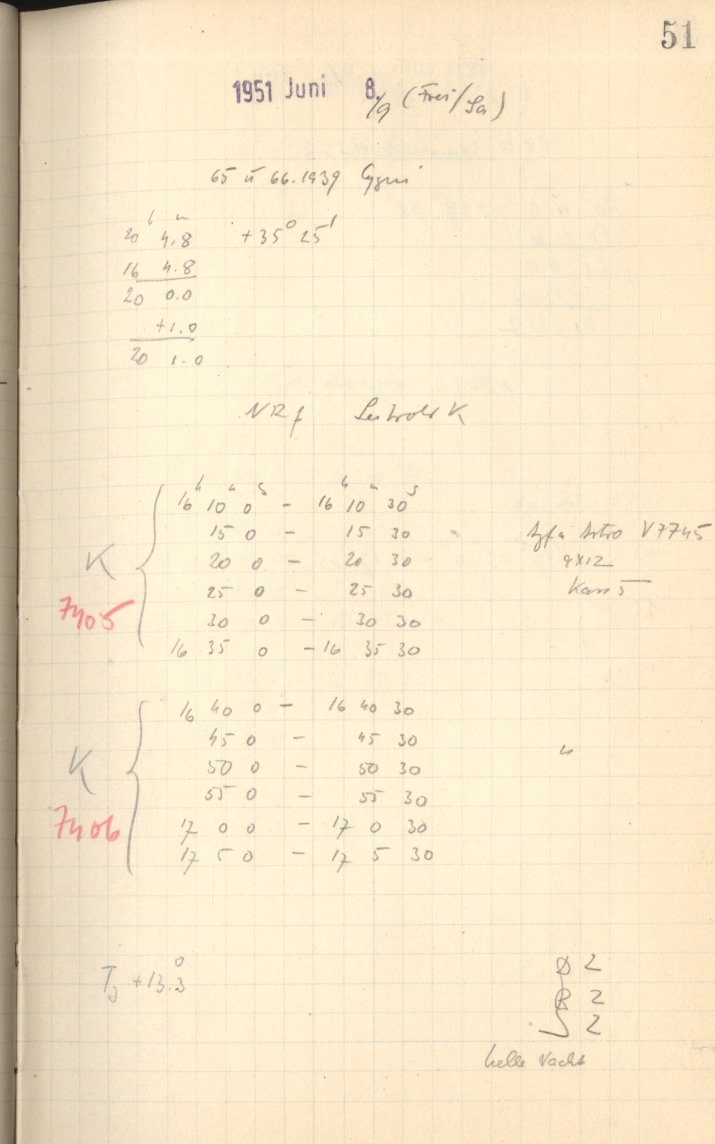 51
1951 Juni 8./9 (Frei/Sa)
65 u 66.1939 Cygni
20h 4.8m +35° 25'
16 4.8
20 0.0
+1.0
20 1.0
NRf K
16h 10m 0s - 16h 10m 30s
15 0 - 15 30
20 0 - 20 30
25 0 - 25 30
30 0 - 30 30
16 35 0 - 16 35 30
K
7405
Agfa Astro V7745
9x12
Kass 5
16 40 0 - 16 40 30
45 0 - 45 30
50 0 - 50 30
55 0 - 55 30
17 0 0 - 17 0 30
17 5 0 - 17 5 30
K
7406
"
T +13.3°
2
R 2
2
helle Nacht